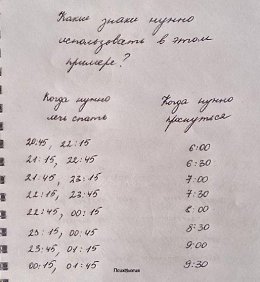 Какие знаки нужно
использовать в этом
примере?
Когда нужно Когда нужно
лечь спать проснуться
20:45, 22:15 6:00
21:15, 22:45 6:30
21:45, 23:15 7:00
22:15, 23:45 7:30
22:45, 00:15 8:00
23:15, 00:45 8:30
23:45, 01:15 9:00
00:15, 01:45 9:30
Психология